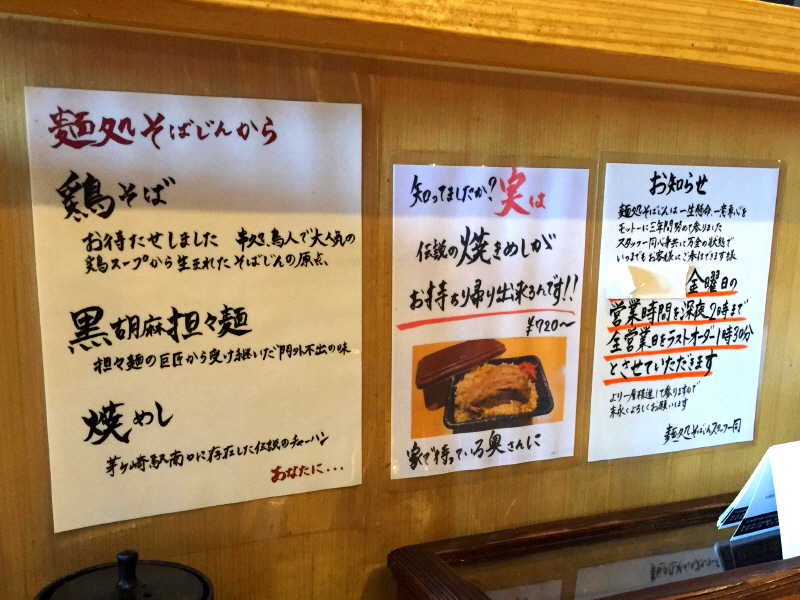 麺処そばじんから
鶏そば
お待たせしました 串処、鳥人で大人気の
鶏スープから生まれたそばじんの原点、
黒胡麻担々麺
担々麺の巨匠から受け継いだ門外不出の味
焼めし
茅ヶ崎駅南口に存在した伝説のチャーハン
あなたに・・・
知ってましたか？実は
伝説の焼きめしが
お持ち帰り出来るんです!!
¥720〜
家で待っている奥さんに
お知らせ
麺処そばじんは一生懸命、一考専心を
モットーに三年間努めて参りました
スタッフ一同心身共に万全の状態で
いつまでもお客様にご奉仕できます様
金曜日の
営業時間を深夜2時まで
全営業日をラストオーダー1時30分
とさせていただきます
より一層精進して参りますので
末永くよろしくお願いします
麺処そばじんスタッフ一同